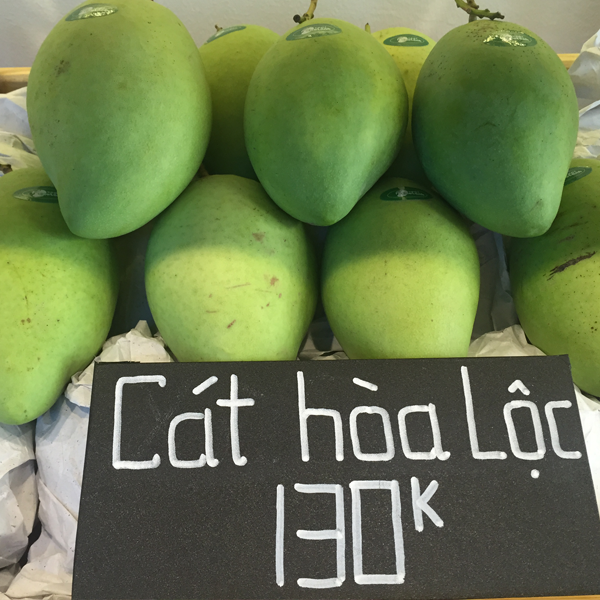 Cát hòa Lộc
130K